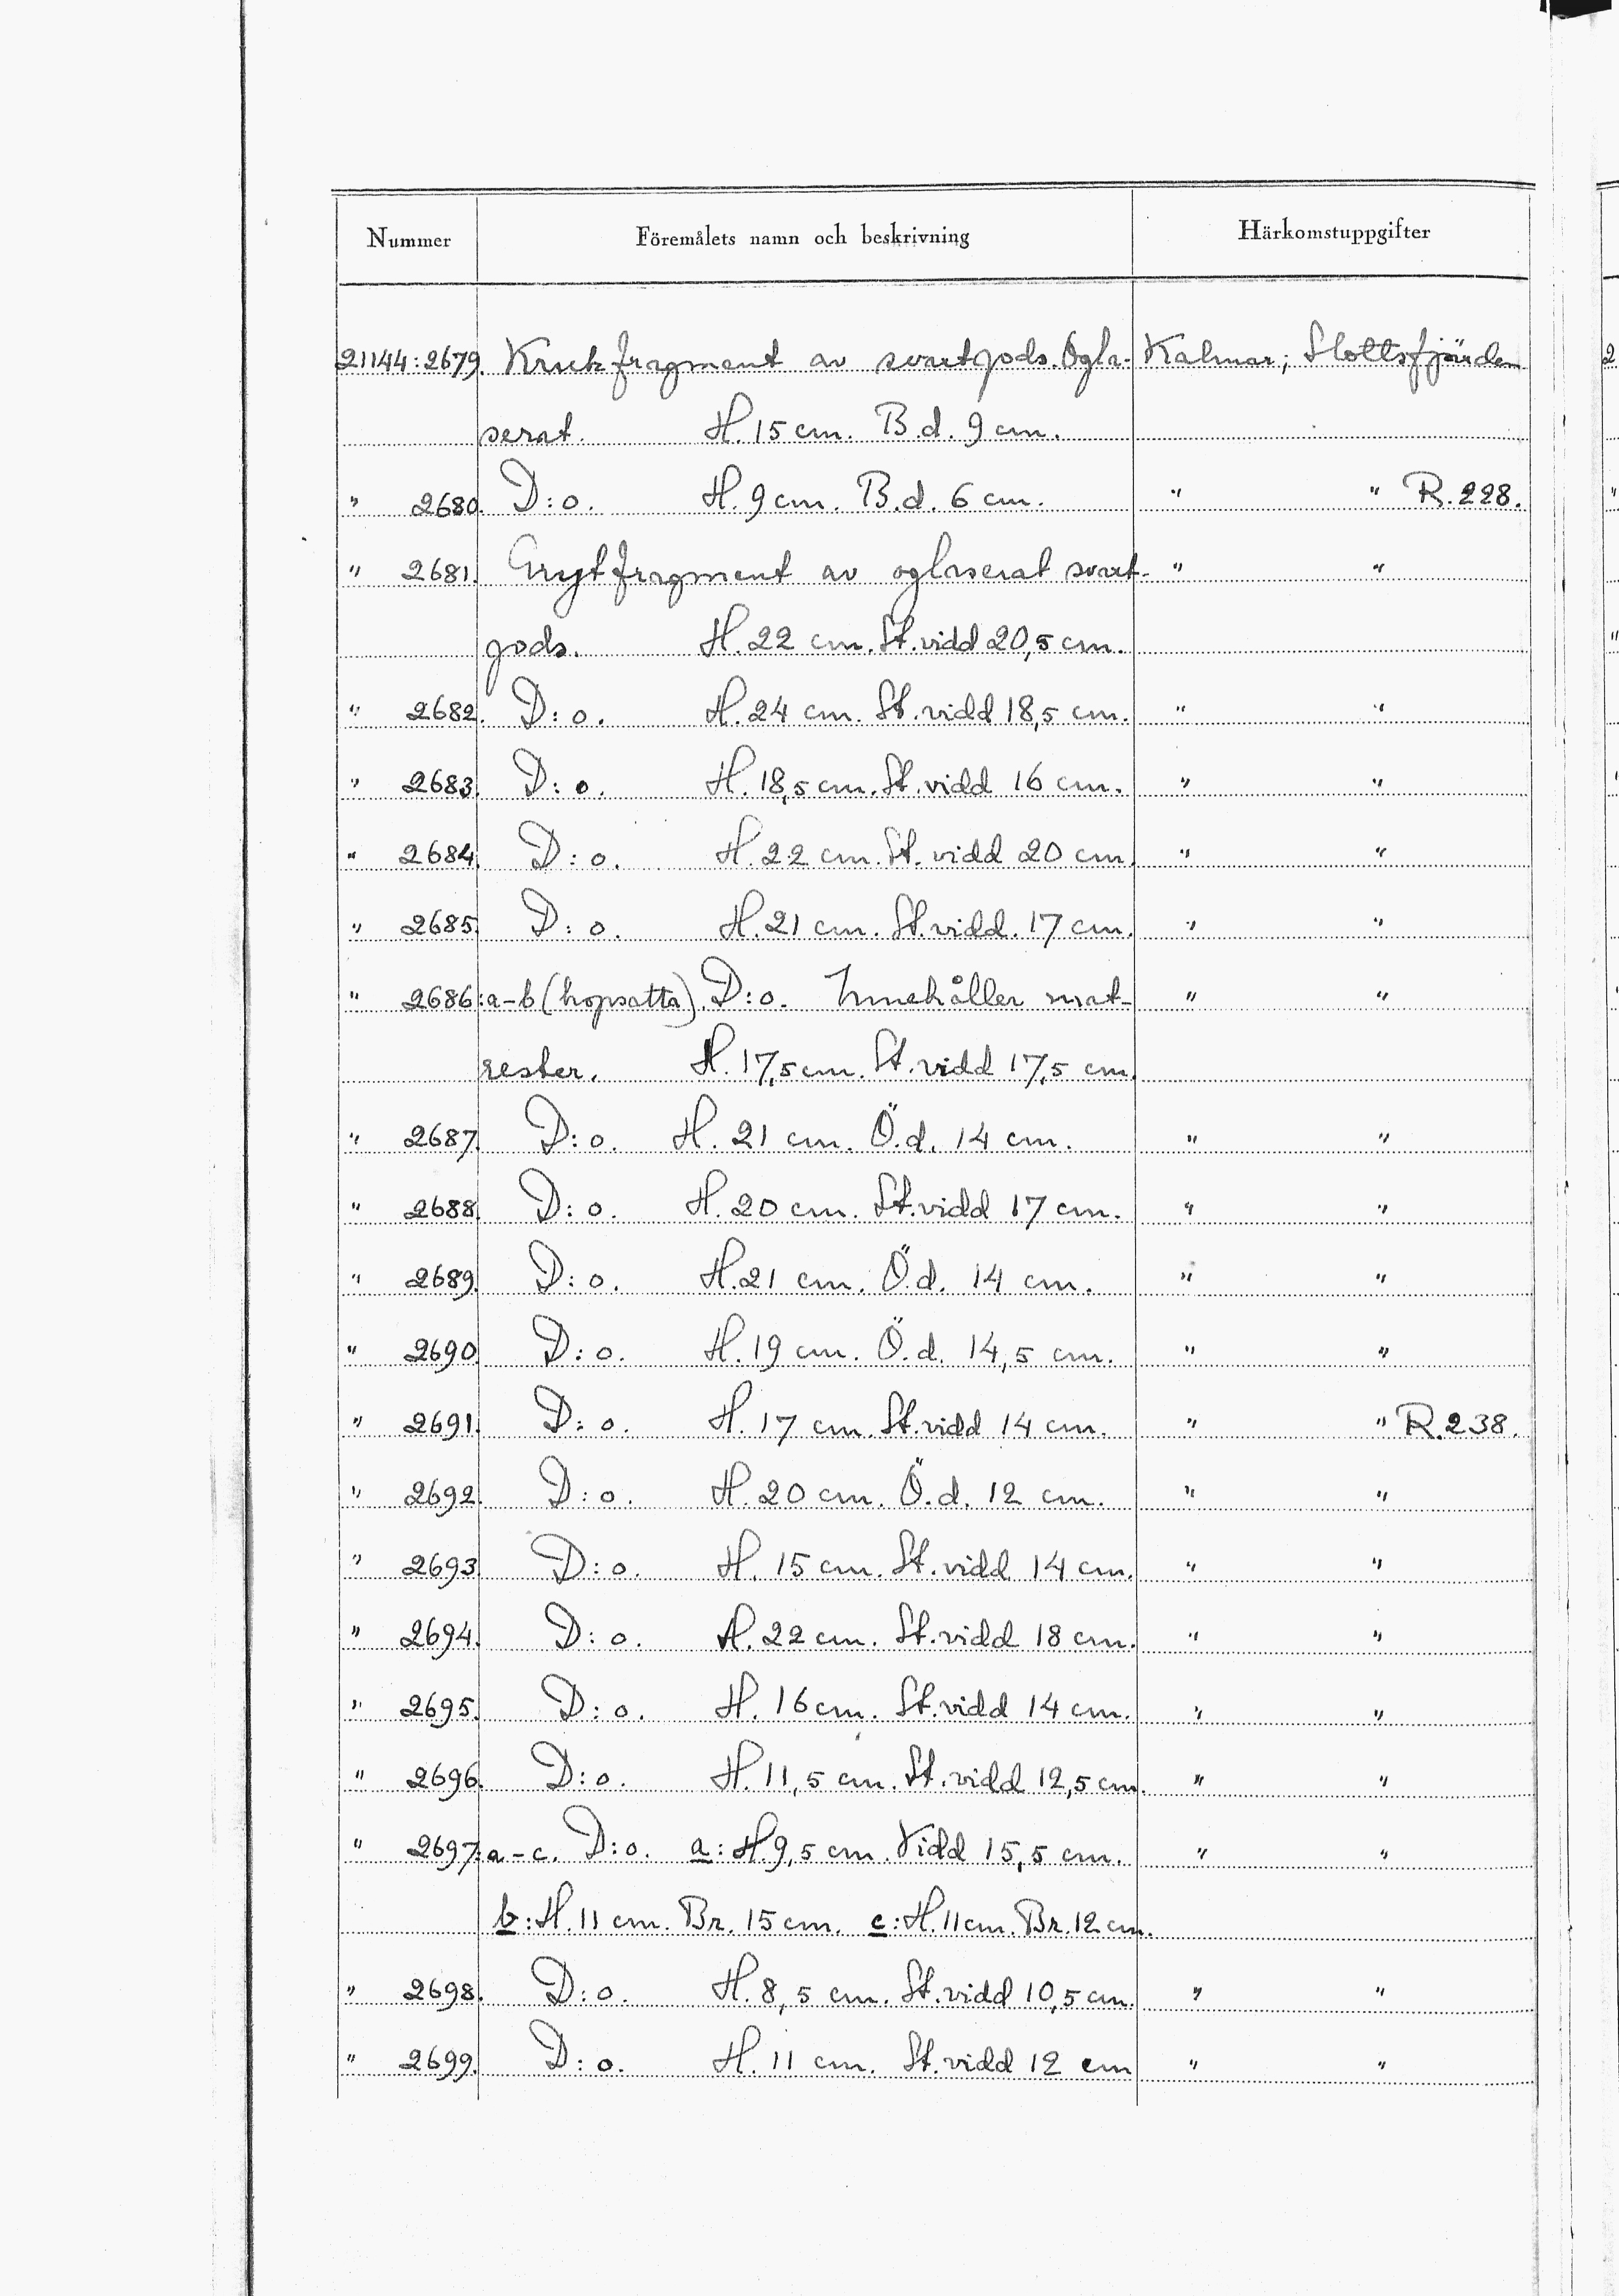 Nummer Föremålets namn och beskrivning Härkomstuppgifter
21144:2679. Krukfragment av svartgods. Ogla- Kalmar; Slottsfjärden
serat. H. 15 cm. B.d. 9 cm.
" 2680. D:o. H. 9 cm. B.d. 6 cm. " " R.228.
" 2681. Grytfragment av oglaserat svart- " "
gods. H. 22 cm. St.vidd 20,5 cm.
" 2682. D:o. H. 24 cm. St.vidd 18,5 cm. " "
" 2683. D:o. H. 18,5 cm. St.vidd 16 cm. " "
" 2684. D:o. H. 22 cm. St.vidd 20 cm. " "
" 2685. D:o. H. 21 cm. St.vidd. 17 cm. " "
" 2686:a-b (hopsatta). D:o. Innehåller mat- " "
rester. H. 17,5 cm. St.vidd 17,5 cm.
" 2687. D:o. H. 21 cm. Ö.d. 14 cm. " "
" 2688. D:o. H. 20 cm. St.vidd 17 cm. " "
" 2689. D:o. H. 21 cm. Ö.d. 14 cm. " "
" 2690. D:o. H. 19 cm. Ö.d. 14,5 cm. " "
" 2691. D:o. H. 17 cm. St.vidd 14 cm. " " R.238.
" 2692. D:o. H. 20 cm. Ö.d. 12 cm. " "
" 2693. D:o. H. 15 cm. St.vidd 14 cm. " "
" 2694. D:o. H. 22 cm. St.vidd 18 cm. " "
" 2695. D:o. H. 16 cm. St.vidd 14 cm. " "
" 2696. D:o. H. 11,5 cm. St.vidd 12,5 cm. " "
" 2697:a-c. D:o. a: H. 9,5 cm. Vidd 15,5 cm. " "
b: H. 11 cm. Br. 15 cm. c: H. 11 cm. Br. 12 cm.
" 2698. D:o. H. 8,5 cm. St.vidd 10,5 cm. " "
" 2699. D:o. H. 11 cm. St.vidd 12 cm " "